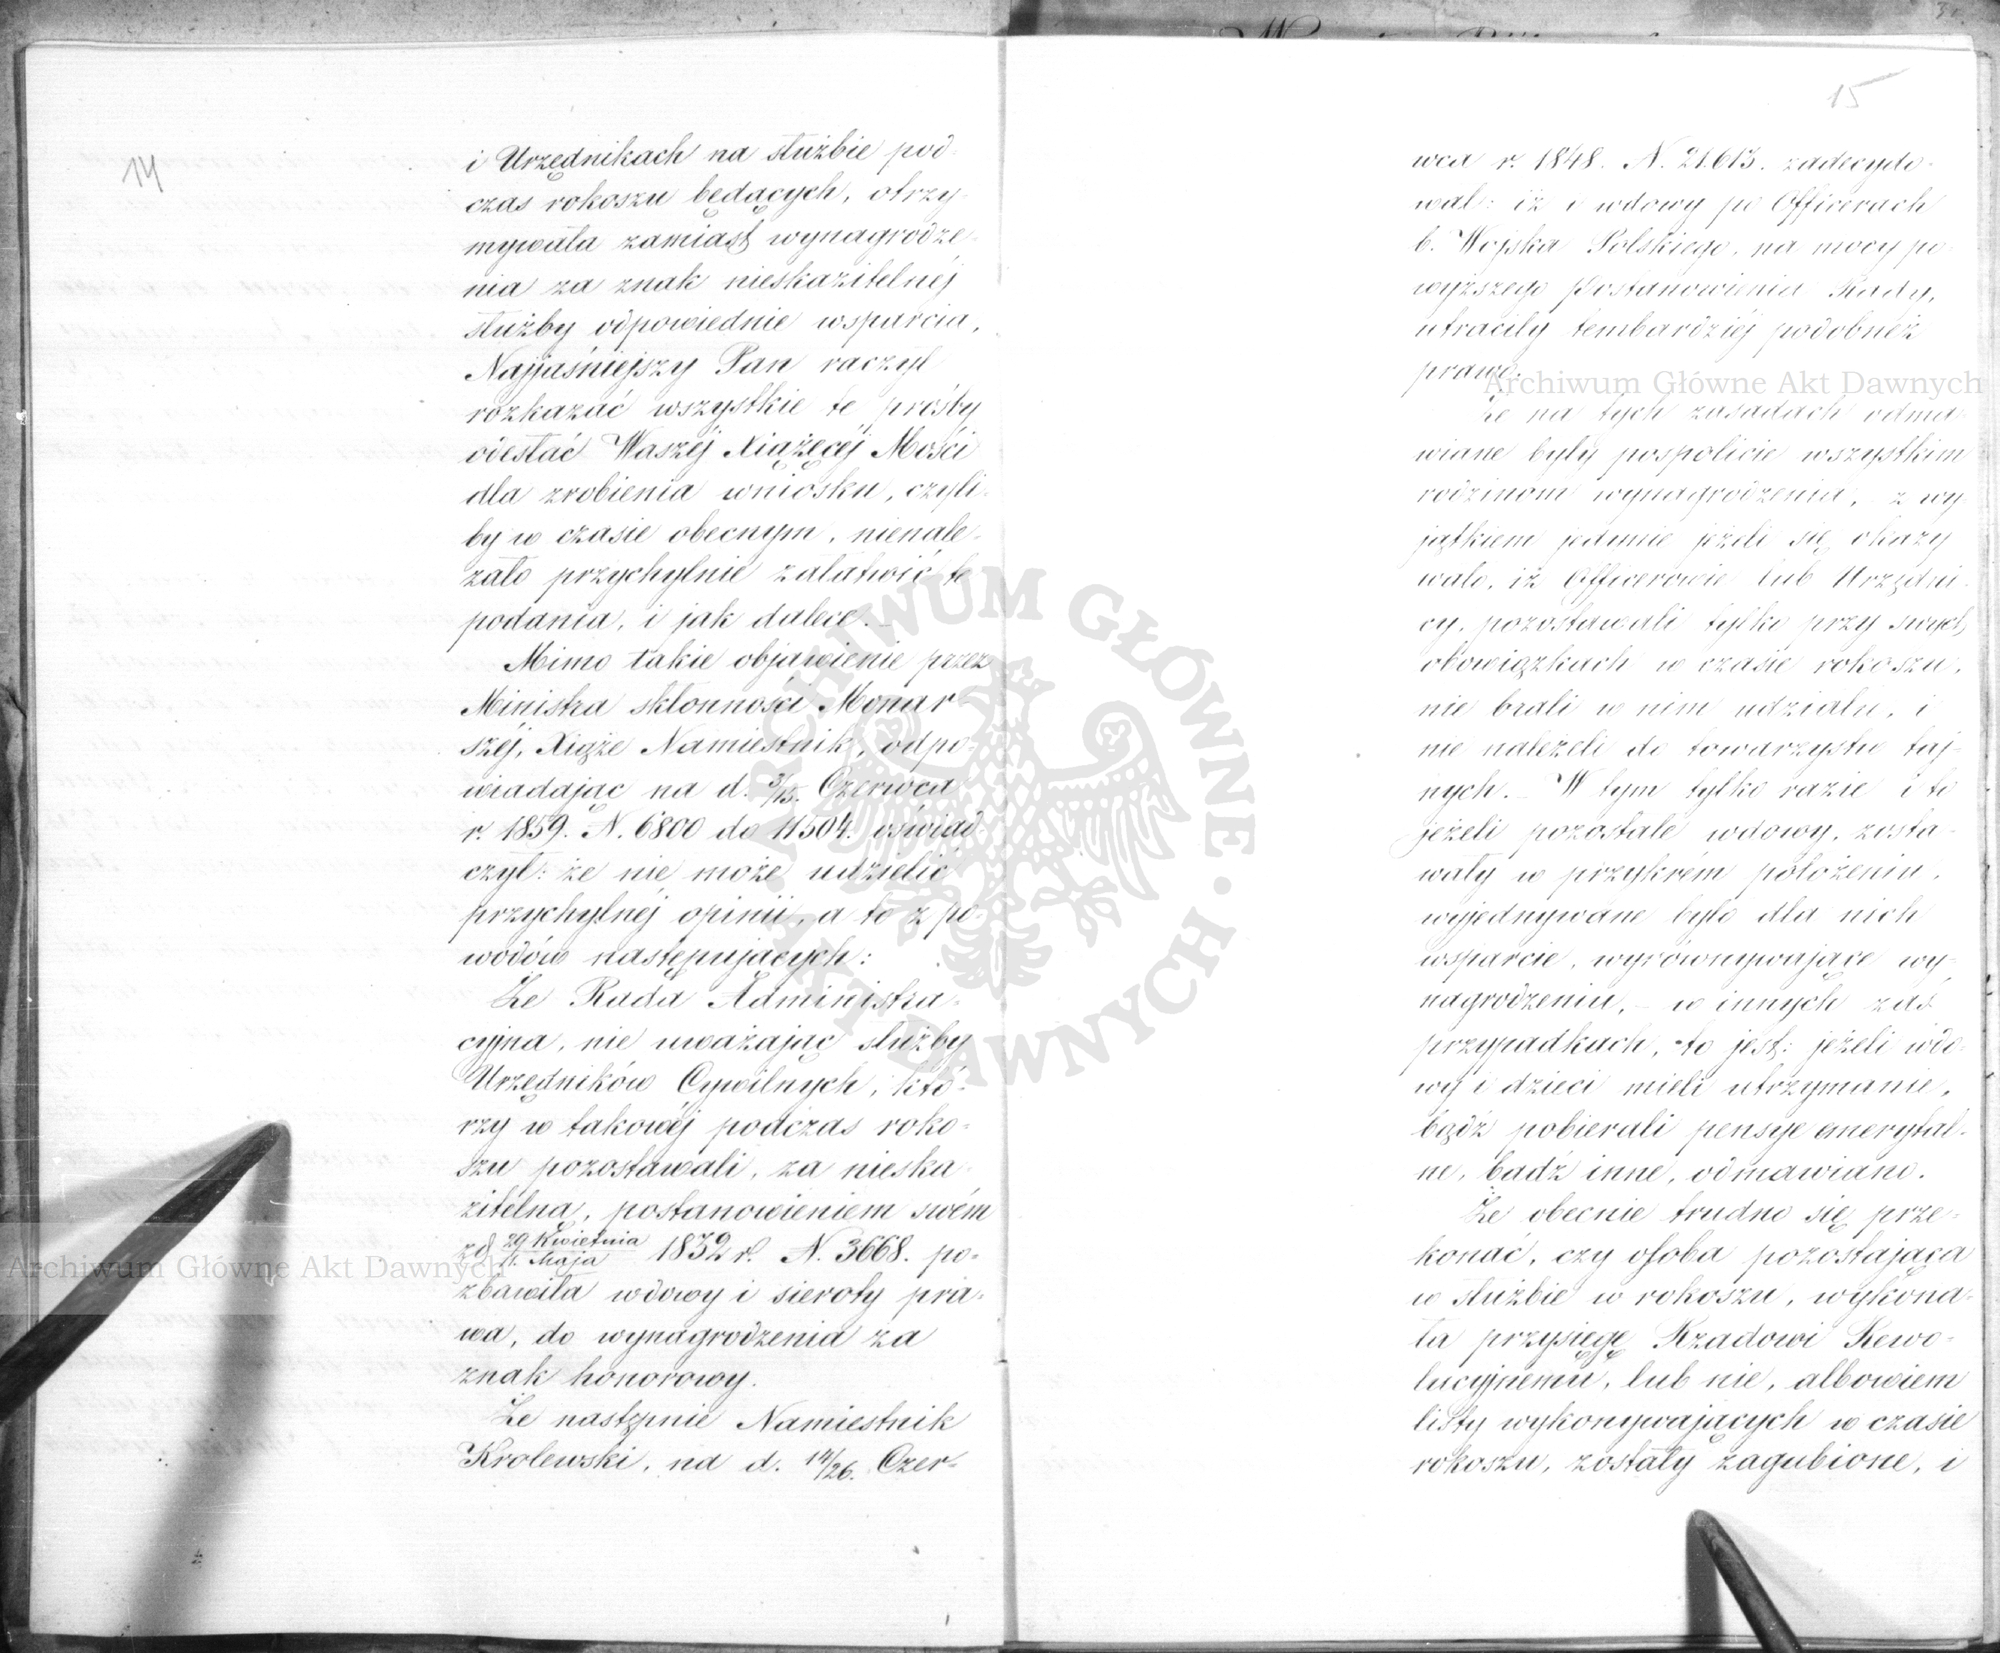 14
i Urzędnikach na służbie pod-
czas rokoszu będących, otrzy-
mywała zamiast wynagrodze-
nia za znak nieskazitelnéj
służby odpowiednie wsparcia,
Najjaśniejszy Pan raczył
rozkazać wszystkie te prośby
odesłać Waszéj Xiążęcéj Mości
dla zrobienia wniosku, czyli-
by w czasie obecnym, nienale-
żało przychylnie załatwić te
podania, i jak dalece. –
Mimo takie objawienie przez
Ministra skłonności Monar-
széj, Xiąże Namiestnik, odpo-
wiadając na d. 3/15. Czerwca
r. 1859. N. 6800 do 11504. oświad-
czył: że nie może udzielić
przychylnéj opinii, a to z po-
wodów następujących:
Że Rada Administra-
cyjna, nie uważając służby
Urzędników Cywilnych, któ-
rzy w takowéj podczas roko-
szu pozostawali, za nieska-
zitelną, postanowieniem swém
zd 29 Kwietnia/11. Maja 1832 r. N. 3668. po-
zbawiła wdowy i sieroty pra-
wa, do wynagrodzenia za
znak honorowy.
Że następnie Namiestnik
Krolewski, na d. 14/26. Czer-
15
wca r. 1848. N. 21.613. zadecydo-
wał: iż i wdowy po Officerach
b. Wojska Polskiego, na mocy po-
wyższego Postanowienia Rady,
utraciły tembardziéj podobneż
prawo.
Że na tych zasadach odma-
wiane były pospolicie wszystkim
rodzinom wynagrodzenia, – z wy
jątkiem jedynie jeżeli się okazy
wało, iż Officerowie lub Urzędni-
cy, pozostawali tylko przy swych
obowiązkach w czasie rokoszu,
nie brali w nim udziału, i
nie należeli do towarzystw taj-
nych. – W tym tylko razie i to
jeżeli pozostałe wdowy, zosta-
wały w przykrém położeniu,
wyjednywane było dla nich
wsparcie, wyrównywające wy-
nagrodzeniu, – w innych zaś
przypadkach, to jest: jeżeli wdo-
wy i dzieci mieli utrzymanie,
bądź pobierali pensye emerytal-
ne, bądź inne, odmawiano.
Że obecnie trudno się prze-
konać, czy osoba pozostająca
w służbie w rokoszu, wykona-
ła przysięgę Rządowi Rewo-
lucyjnemu, lub nie, albowiem
listy wykonywających w czasie
rokoszu, zostały zagubione, i
Archiwum Główne Akt Dawnych
Archiwum Główne Akt Dawnych
ARCHIWUM GŁÓWNE AKT DAWNYCH